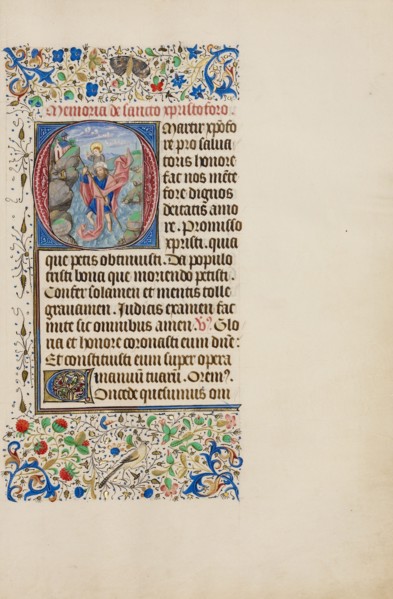 Memoria de sancto xpristoforo.
O Martir xpofo
re pro salua
toris honore
fac nos mete
fore dignos
deitatis amo
re. Promisso
xpristi. quia
que petis obtinuisti. Da populo
tristi bona que moriendo petisti.
Confer solamen et mentis tolle
grauamen. Iudicis examen fac
mite sit omnibus amen. V̾ Glo
ria et honore coronasti eum dn̄e:
Et constituisti eum super opera
manuū tuarū. Orem̾.
Concede quesumus om